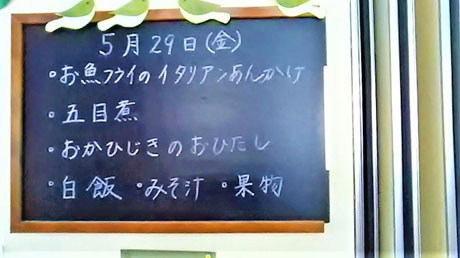 5月29日(金)
・お魚フライのイタリアンあんかけ
・五目煮
・おかひじきのおひたし
・白飯 ・みそ汁 ・果物